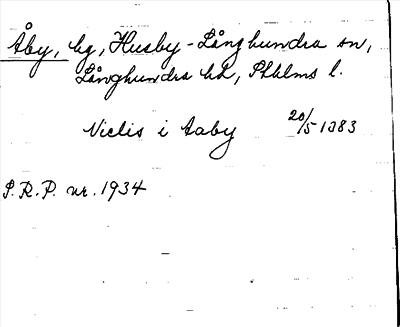 Åby, bg, Husby-Långhundra sn,
Långhundra hd, Sthlms l.
Niclis i Aaby 20/5 1383
S.R.P. nr. 1934